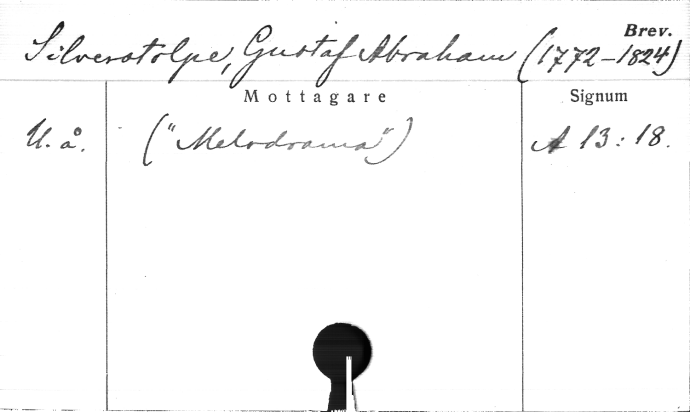 Brev.
Silverstolpe, Gustaf Abraham (1772-1824)
Mottagare Signum
U. å. ("Melodrama") A 13:18.